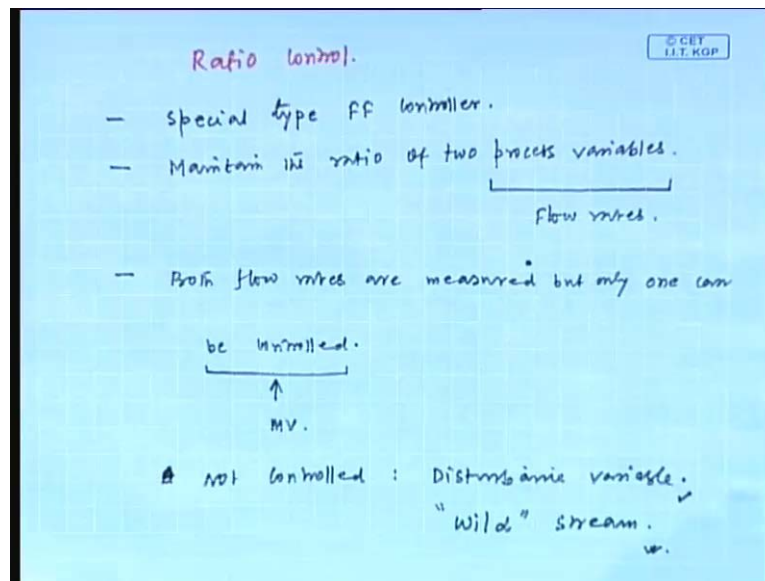 Ratio Control.
© CET
I.I.T. KGP
- Special type FF Controller.
- Maintain the ratio of two process variables.
Flow rates.
- Both flow rates are measured but only one can
be controlled.
MV.
Not Controlled : Disturbance variable.
"Wild" stream.